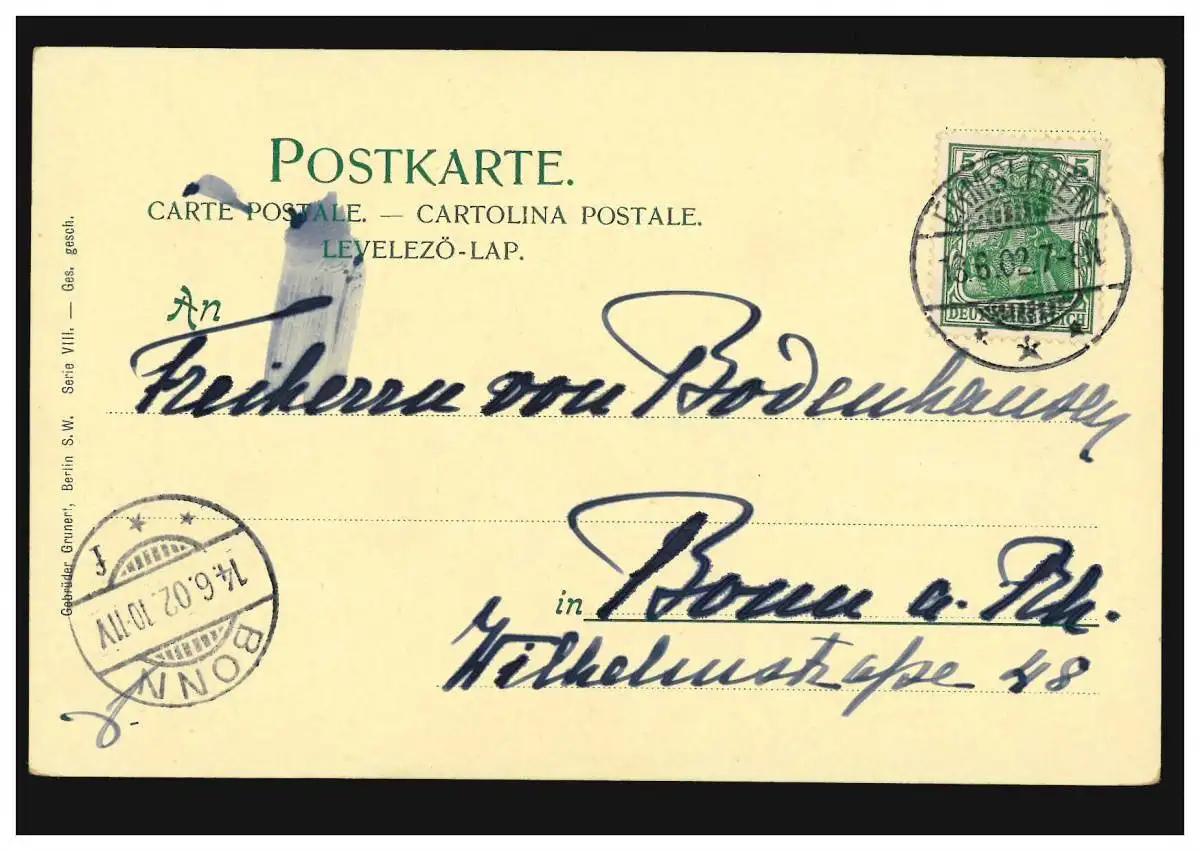 POSTKARTE.
CARTE POSTALE. — CARTOLINA POSTALE.
LEVELEZŐ-LAP.
An
Freiherrn von Bodenhausen
in Bonn a. Rh.
Wilhelmstraße 48
Gebrüder Grunert, Berlin S.W. Serie VIII. — Ges. gesch.
5 5
DEUTSCHES REICH
13.6.02.7-8N
BONN
14.6.02.10-11V
f